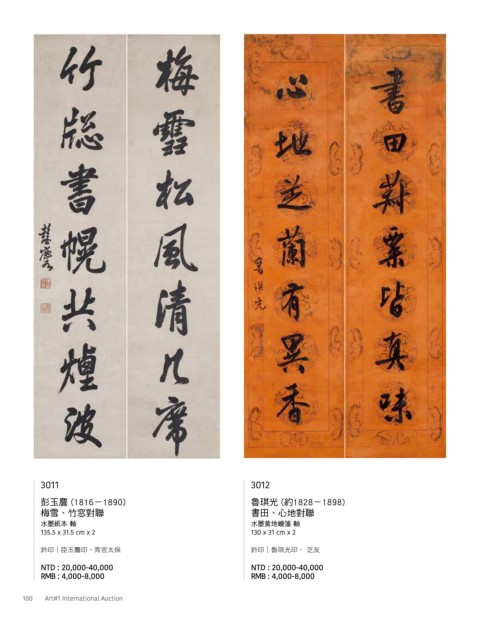 梅雪松風清几席
竹牕書幌共煙波
彭玉麐
書田菽粟皆真味
心地芝蘭有異香
魯琪光
3011
彭玉麐（1816－1890）
梅雪、竹窓對聯
水墨紙本 軸
135.5 x 31.5 cm x 2
鈐印｜臣玉麐印、青宮太保
NTD : 20,000-40,000
RMB : 4,000-8,000
3012
魯琪光（約1828－1898）
書田、心地對聯
水墨黃地蠟箋 軸
130 x 31 cm x 2
鈐印｜魯琪光印、芝友
NTD : 20,000-40,000
RMB : 4,000-8,000
100 Art#1 International Auction